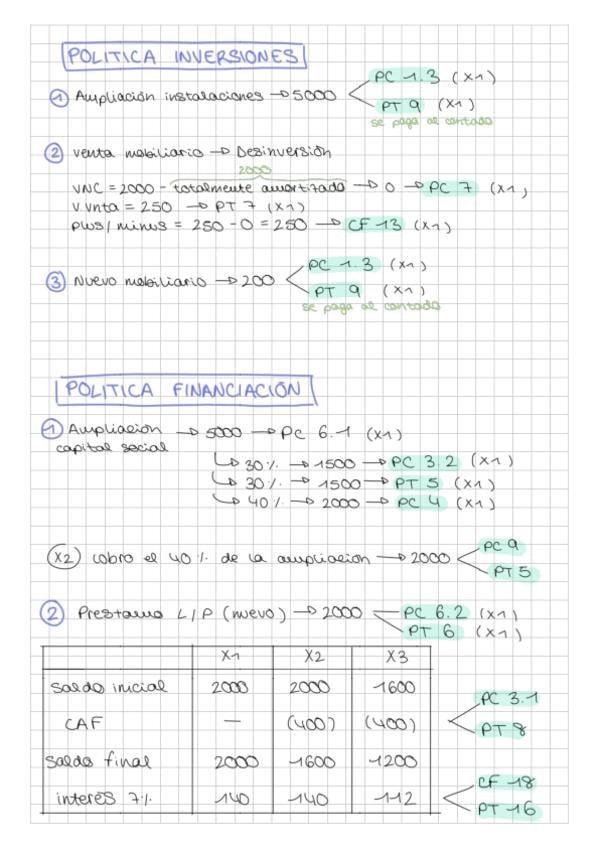 POLITICA INVERSIONES
① Ampliación instalaciones → 5000
PC 1.3 (X1)
PT 9 (X1)
se paga al contado
② venta mobiliario → Desinversión
2000
VNC = 2000 - totalmente amortizado → 0 → PC 7 (X1)
V.Vnta = 250 → PT 7 (X1)
plus/minus = 250 - 0 = 250 → CF 13 (X1)
③ Nuevo mobiliario → 200
PC 1.3 (X1)
PT 9 (X1)
se paga al contado
POLITICA FINANCIACIÓN
① Ampliación → 5000 → PC 6.1 (X1)
capital social
↳ 30% → 1500 → PC 3.2 (X1)
↳ 30% → 1500 → PT 5 (X1)
↳ 40% → 2000 → PC 4 (X1)
X2 cobro el 40% de la ampliación → 2000
PC 9
PT 5
② Prestamo L/P (nuevo) → 2000
PC 6.2 (X1)
PT 6 (X1)
X1 X2 X3
saldo inicial 2000 2000 1600
CAF — (400) (400)
PC 3.1
PT 8
saldo final 2000 1600 1200
interes 7% 140 140 112
CF 18
PT 16